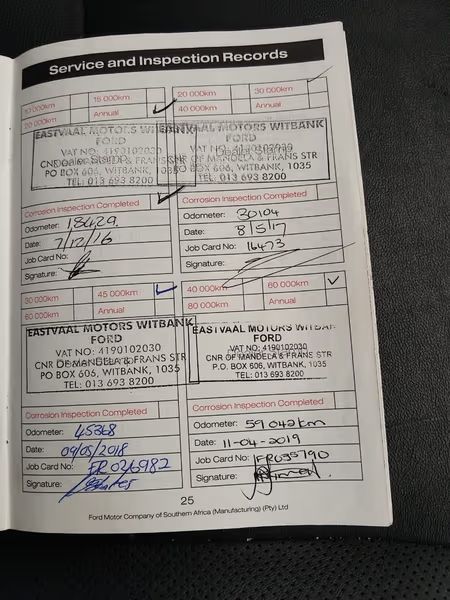 Service and Inspection Records
10 000km 15 000km
20 000km Annual
20 000km 30 000km
40 000km Annual
EASTVAAL MOTORS WITBANK
FORD
VAT NO: 4190102030
CNR OF MANDELA & FRANS STR
PO BOX 606, WITBANK, 1035
TEL: 013 693 8200
EASTVAAL MOTORS WITBANK
FORD
VAT NO: 4190102030
CNR OF MANDELA & FRANS STR
PO BOX 606, WITBANK, 1035
TEL: 013 693 8200
Corrosion Inspection Completed
Odometer: 18429
Date: 7/12/16
Job Card No:
Signature:
Corrosion Inspection Completed
Odometer: 30104
Date: 8/5/17
Job Card No: 16473
Signature:
30 000km 45 000km
60 000km Annual
40 000km 60 000km
80 000km Annual
EASTVAAL MOTORS WITBANK
FORD
VAT NO: 4190102030
CNR OF MANDELA & FRANS STR
PO BOX 606, WITBANK, 1035
TEL: 013 693 8200
EASTVAAL MOTORS WITBANK
FORD
VAT NO: 4190102030
CNR OF MANDELA & FRANS STR
P.O. BOX 606, WITBANK, 1035
TEL: 013 693 8200
Corrosion Inspection Completed
Odometer: 45368
Date: 09/05/2018
Job Card No: FR026982
Signature:
Corrosion Inspection Completed
Odometer: 59042km
Date: 11-04-2019
Job Card No: FR035790
Signature:
25
Ford Motor Company of Southern Africa (Manufacturing) (Pty) Ltd